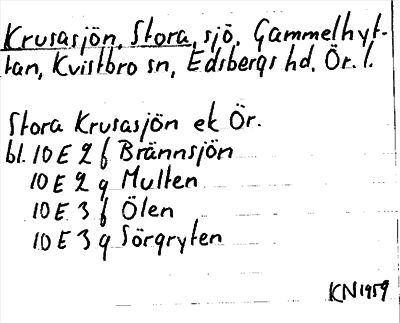 Krusasjön, Stora, sjö, Gammelhyt-
tan, Kvistbro sn, Edsbergs hd, Ör. l.
Stora Krusasjön ek Ör.
bl. 10 E 2 f Brännsjön
10 E 2 g Multen
10 E 3 f Ölen
10 E 3 g Sörgryten
KN 1959